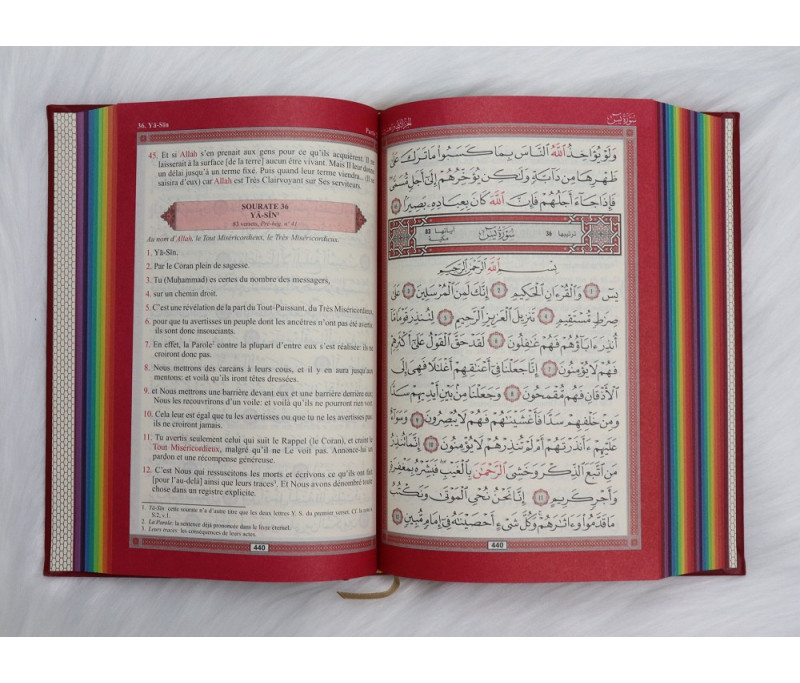 36. Yâ-Sîn
45. Et si Allah s'en prenait aux gens pour ce qu'ils acquièrent, Il ne
laisserait à la surface [de la terre] aucun être vivant. Mais Il leur donne
un délai jusqu'à un terme fixé. Puis quand leur terme viendra... (Il se
saisira d'eux) car Allah est Très Clairvoyant sur Ses serviteurs.
SOURATE 36
YÂ-SÎN¹
83 versets, Pré-hég. n° 41
Au nom d'Allah, le Tout Miséricordieux, le Très Miséricordieux.
1. Yâ-Sîn.
2. Par le Coran plein de sagesse.
3. Tu (Muḥammad) es certes du nombre des messagers,
4. sur un chemin droit.
5. C'est une révélation de la part du Tout-Puissant, du Très Miséricordieux,
6. pour que tu avertisses un peuple dont les ancêtres n'ont pas été avertis:
ils sont donc insouciants.
7. En effet, la Parole² contre la plupart d'entre eux s'est réalisée: ils ne
croiront donc pas.
8. Nous mettrons des carcans à leurs cous, et il y en aura jusqu'aux
mentons: et voilà qu'ils iront têtes dressées.
9. et Nous mettrons une barrière devant eux et une barrière derrière eux;
Nous les recouvrirons d'un voile: et voilà qu'ils ne pourront rien voir.
10. Cela leur est égal que tu les avertisses ou que tu ne les avertisses pas:
ils ne croiront jamais.
11. Tu avertis seulement celui qui suit le Rappel (le Coran), et craint le
Tout Miséricordieux, malgré qu'il ne Le voit pas. Annonce-lui un
pardon et une récompense généreuse.
12. C'est Nous qui ressuscitons les morts et écrivons ce qu'ils ont fait
[pour l'au-delà] ainsi que leurs traces³. Et Nous avons dénombré toute
chose dans un registre explicite.
1. Yâ-Sîn: cette sourate n'a d'autre titre que les deux lettres Y. S. du premier verset. Cf. la note à
S.2, v.1.
2. La Parole: la sentence déjà prononcée dans le livre éternel.
3. Leurs traces: les conséquences de leurs actes.
440
سورة يس
وَلَوْ يُؤَاخِذُ اللَّهُ النَّاسَ بِمَا كَسَبُوا مَا تَرَكَ عَلَىٰ
ظَهْرِهَا مِن دَابَّةٍ وَلَٰكِن يُؤَخِّرُهُمْ إِلَىٰ أَجَلٍ مُّسَمًّى
فَإِذَا جَاءَ أَجَلُهُمْ فَإِنَّ اللَّهَ كَانَ بِعِبَادِهِ بَصِيرًا ٤٥
ترتيبها 36 سُورَةُ يسٓ آياتها 83 مكية
بِسْمِ اللَّهِ الرَّحْمَٰنِ الرَّحِيمِ
يسٓ ١ وَالْقُرْءَانِ الْحَكِيمِ ٢ إِنَّكَ لَمِنَ الْمُرْسَلِينَ ٣ عَلَىٰ
صِرَٰطٍ مُّسْتَقِيمٍ ٤ تَنزِيلَ الْعَزِيزِ الرَّحِيمِ ٥ لِتُنذِرَ قَوْمًا مَّا
أُنذِرَ ءَابَاؤُهُمْ فَهُمْ غَٰفِلُونَ ٦ لَقَدْ حَقَّ الْقَوْلُ عَلَىٰ أَكْثَرِهِمْ
فَهُمْ لَا يُؤْمِنُونَ ٧ إِنَّا جَعَلْنَا فِي أَعْنَٰقِهِمْ أَغْلَٰلًا فَهِيَ إِلَى
الْأَذْقَانِ فَهُم مُّقْمَحُونَ ٨ وَجَعَلْنَا مِن بَيْنِ أَيْدِيهِمْ سَدًّا
وَمِنْ خَلْفِهِمْ سَدًّا فَأَغْشَيْنَٰهُمْ فَهُمْ لَا يُبْصِرُونَ ٩ وَسَوَاءٌ
عَلَيْهِمْ ءَأَنذَرْتَهُمْ أَمْ لَمْ تُنذِرْهُمْ لَا يُؤْمِنُونَ ١٠ إِنَّمَا تُنذِرُ
مَنِ اتَّبَعَ الذِّكْرَ وَخَشِيَ الرَّحْمَٰنَ بِالْغَيْبِ فَبَشِّرْهُ بِمَغْفِرَةٍ
وَأَجْرٍ كَرِيمٍ ١١ إِنَّا نَحْنُ نُحْيِ الْمَوْتَىٰ وَنَكْتُبُ
مَا قَدَّمُوا وَءَاثَٰرَهُمْ وَكُلَّ شَيْءٍ أَحْصَيْنَٰهُ فِي إِمَامٍ مُّبِينٍ ١٢
440